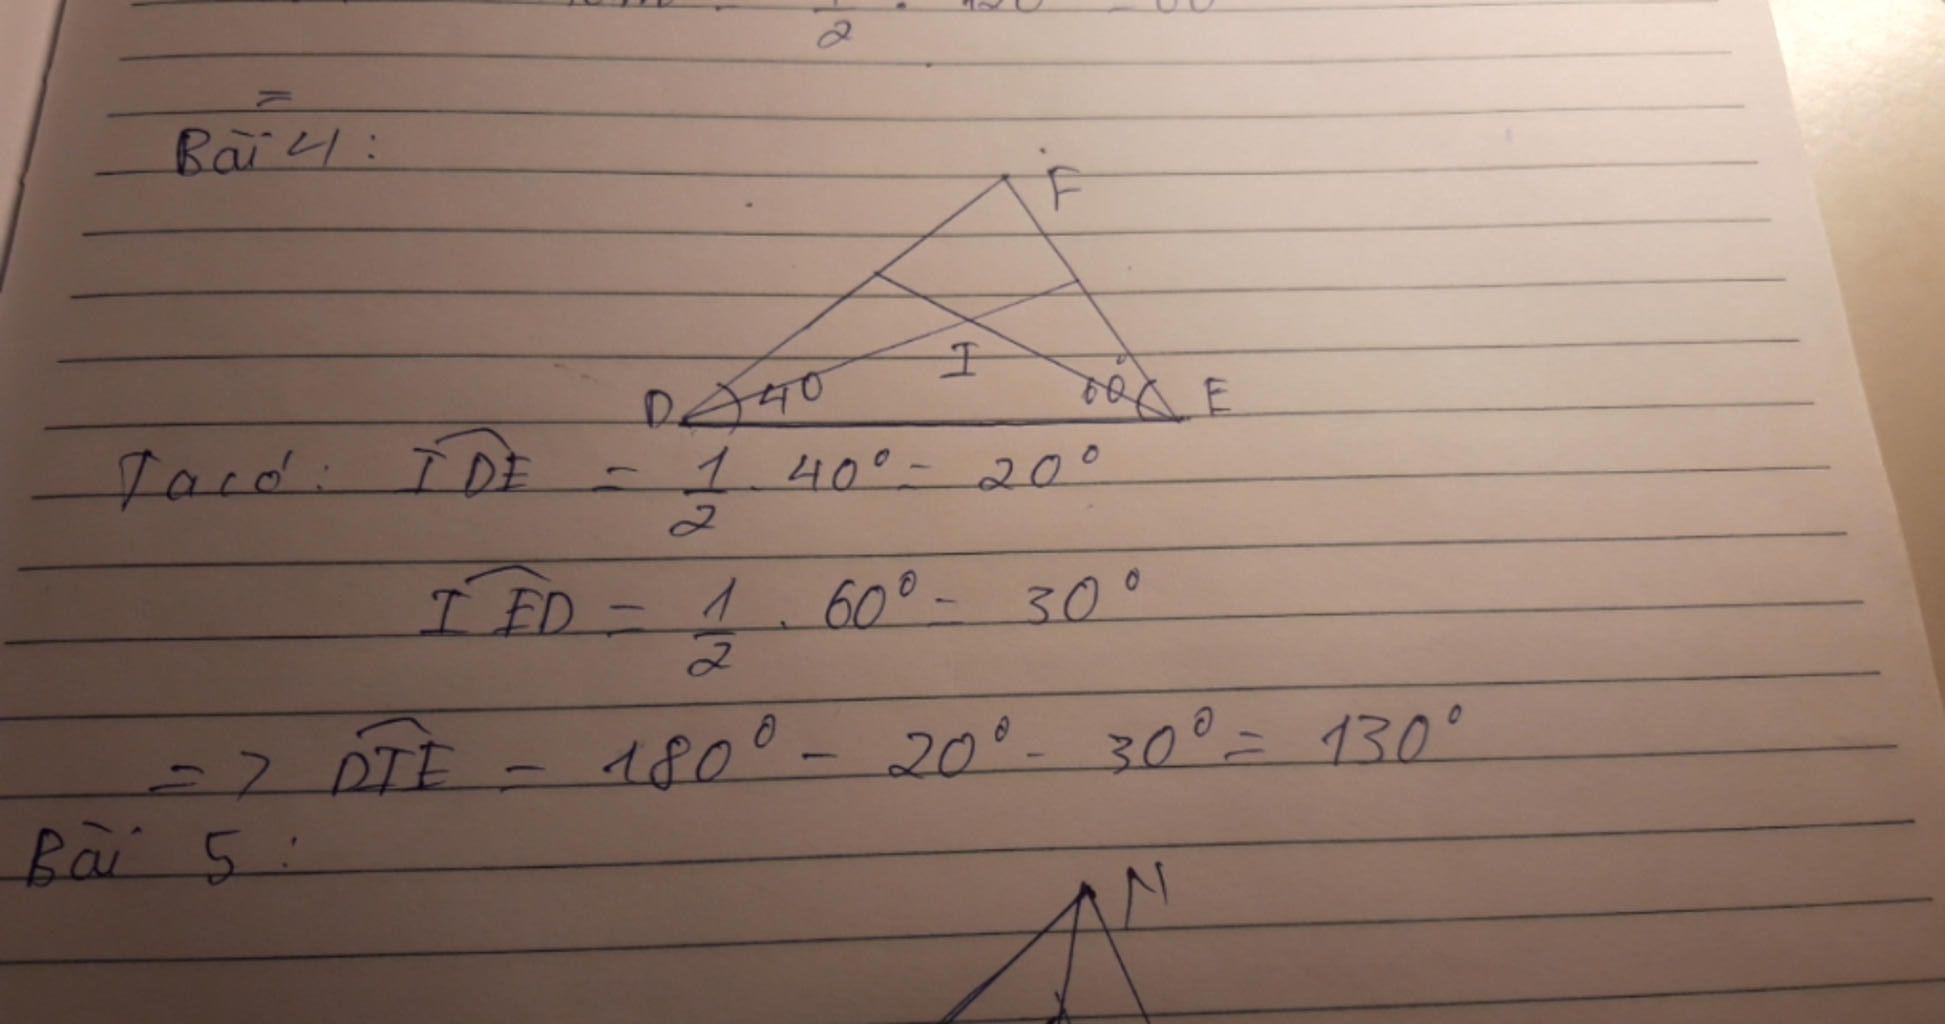 1/2 · 120
=
Bài 4:
F
I
D 40 60° E
Ta có: IDE = 1/2 . 40° = 20°
IED = 1/2 . 60° = 30°
=> DIE = 180° - 20° - 30° = 130°
Bài 5:
N